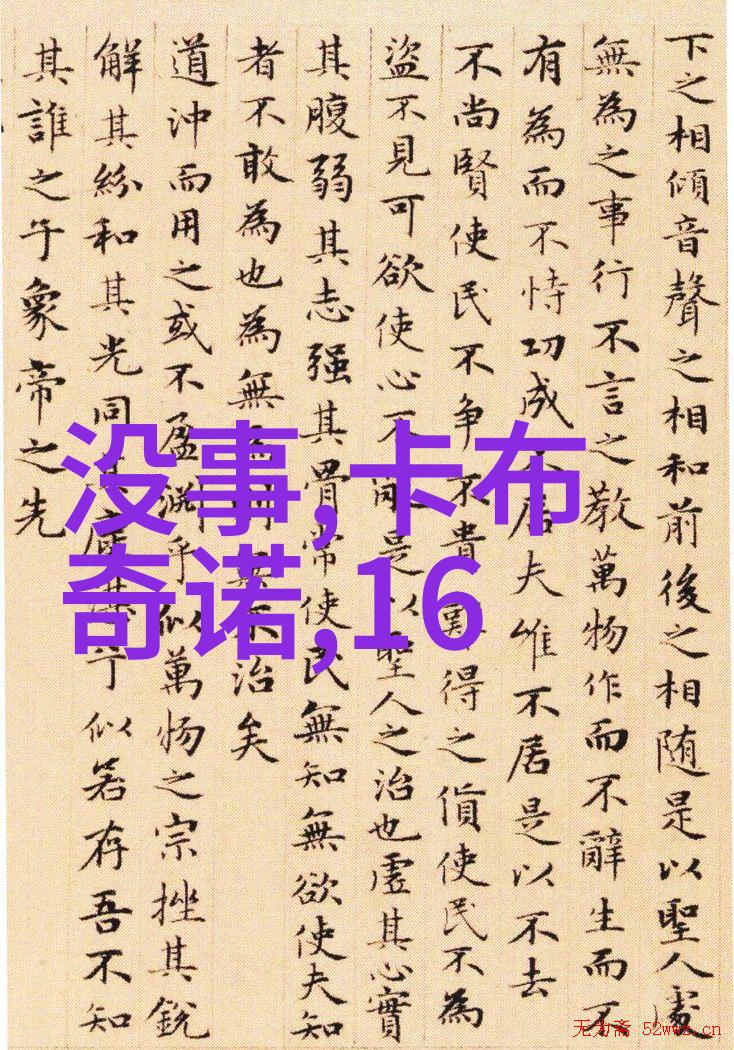 下之相傾音聲之相和前後之相随是以聖人處
無為之事行不言之教萬物作而不辭生而不
有為而不恃功成不居夫唯不居是以不去
不尚賢使民不争不貴難得之貨使民不為
盜不見可欲使心不是以聖人之治也虛其心實
其腹弱其志强其骨常使民無知無欲使夫知
者不敢為也為無為無不治矣
道沖而用之或不盈淵乎似萬物之宗挫其銳
解其紛和其光同其兮似若存吾不知
其誰之子象帝之先
没事,卡布
奇诺,16
无为斋 52wwz.cn